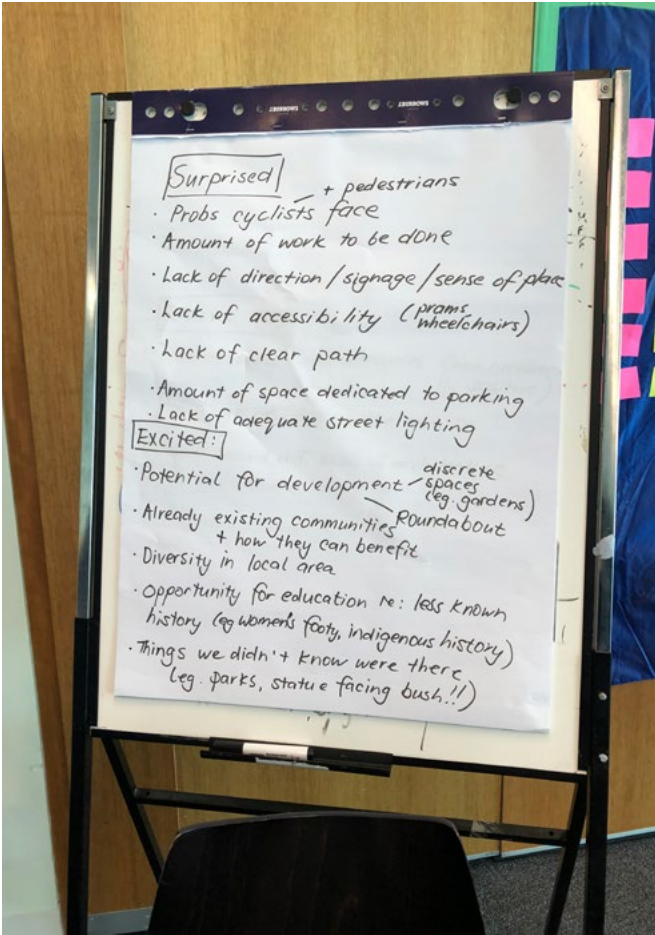 Surprised
+ pedestrians
· Probs cyclists face
· Amount of work to be done
· Lack of direction / signage / sense of place
· Lack of accessibility (prams, wheelchairs)
· Lack of clear path
· Amount of space dedicated to parking
· Lack of adequate street lighting
Excited:
· Potential for development
discrete
spaces
(eg. gardens)
Roundabout
· Already existing communities
+ how they can benefit
· Diversity in local area
· Opportunity for education re: less known
history (eg women's footy, indigenous history)
· Things we didn't know were there
(eg. parks, statue facing bush!!)